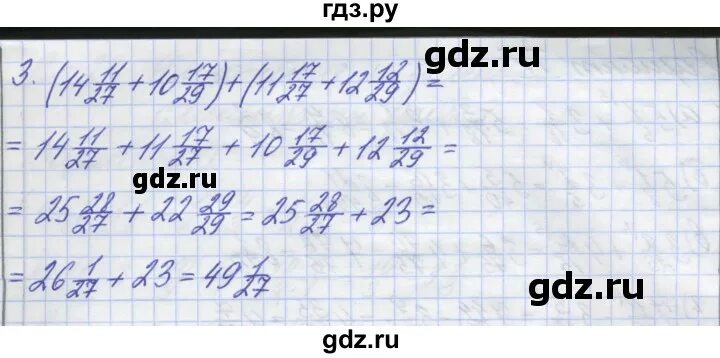 гдз.ру
3. (14 11/27 + 10 17/29) + (11 17/27 + 12 12/29) =
= 14 11/27 + 11 17/27 + 10 17/29 + 12 12/29 =
gdz.ru
= 25 28/27 + 22 29/29 = 25 28/27 + 23 =
= 26 1/27 + 23 = 49 1/27
gdz.ru
gdz.ru